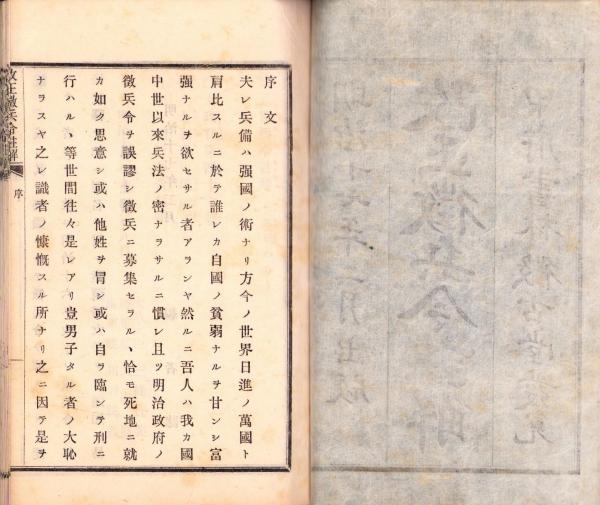 序文
夫レ兵備ハ强國ノ術ナリ方今ノ世界日進ノ萬國ト
肩比スルニ於テ誰レカ自國ノ貧弱ナルヲ甘ンシ富
强ナルヲ欲セサル者アランヤ然ルニ吾人ハ我カ國
中世以來兵法ノ密ナラサルニ慣レ且ツ明治政府ノ
徵兵令ヲ誤謬シ徵兵ニ募集セラルヽ恰モ死地ニ就
カ如ク思意シ或ハ他姓ヲ冐シ或ハ自ヲ臨ンテ刑ニ
行ハルヽ等世間徃々是レアリ豈男子タル者ノ大恥
ナラスヤ之レ識者ノ慷慨スル所ナリ之ニ因テ是ヲ
改正徵兵令註解
序